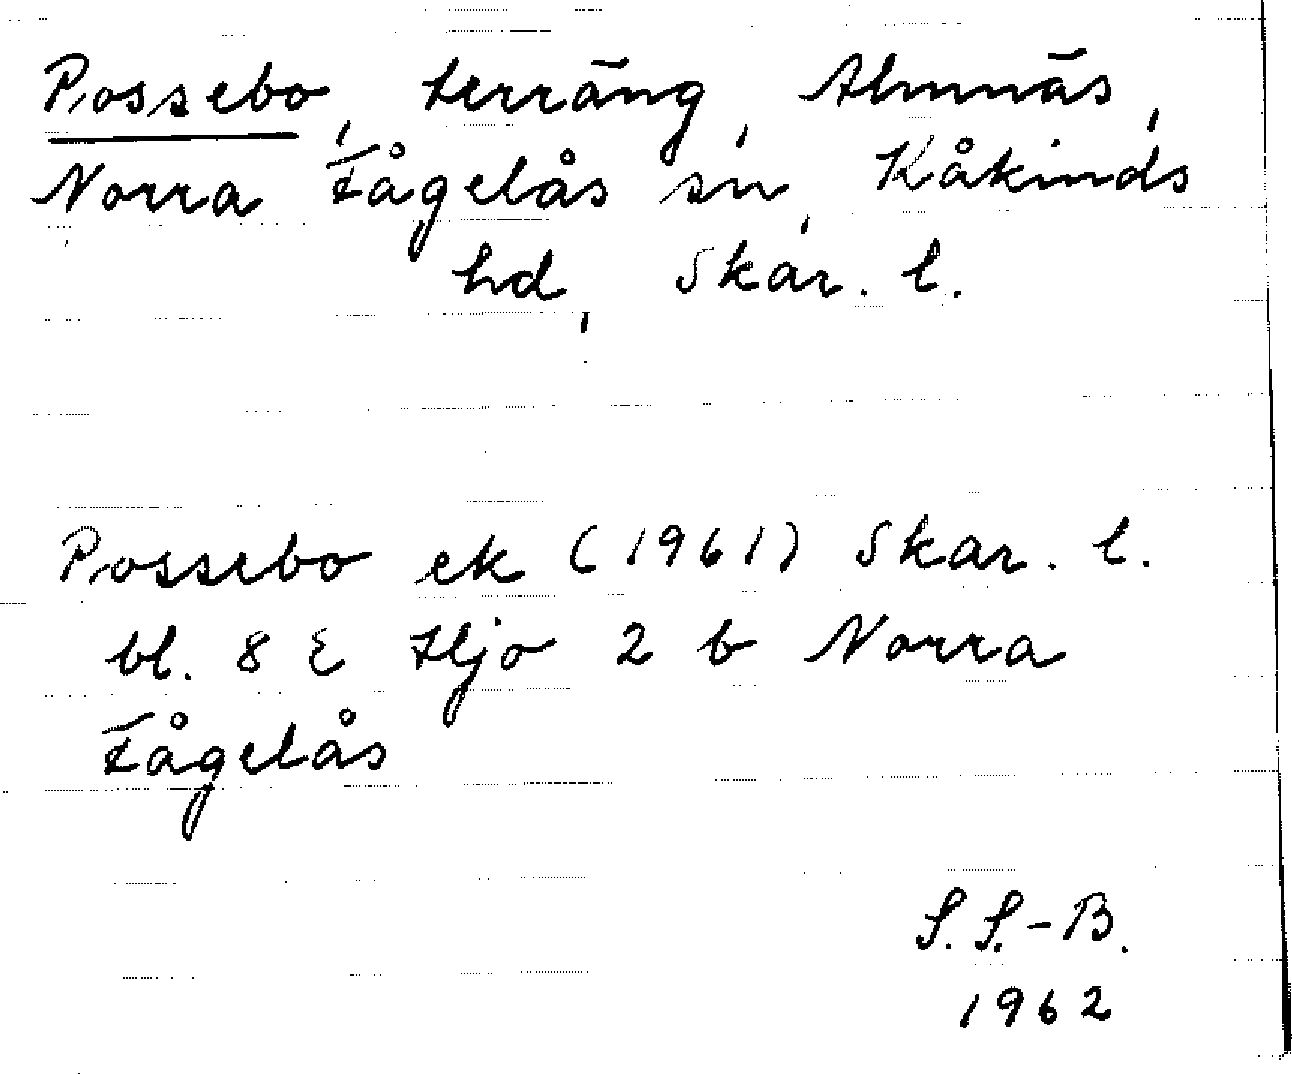 Possebo, terräng, Almnäs,
Norra Fågelås sn, Kåkinds
hd, Skar. l.
Possebo ek (1961) Skar. l.
bl. 8 E Hjo 2 b Norra
Fågelås
S. S.-B.
1962